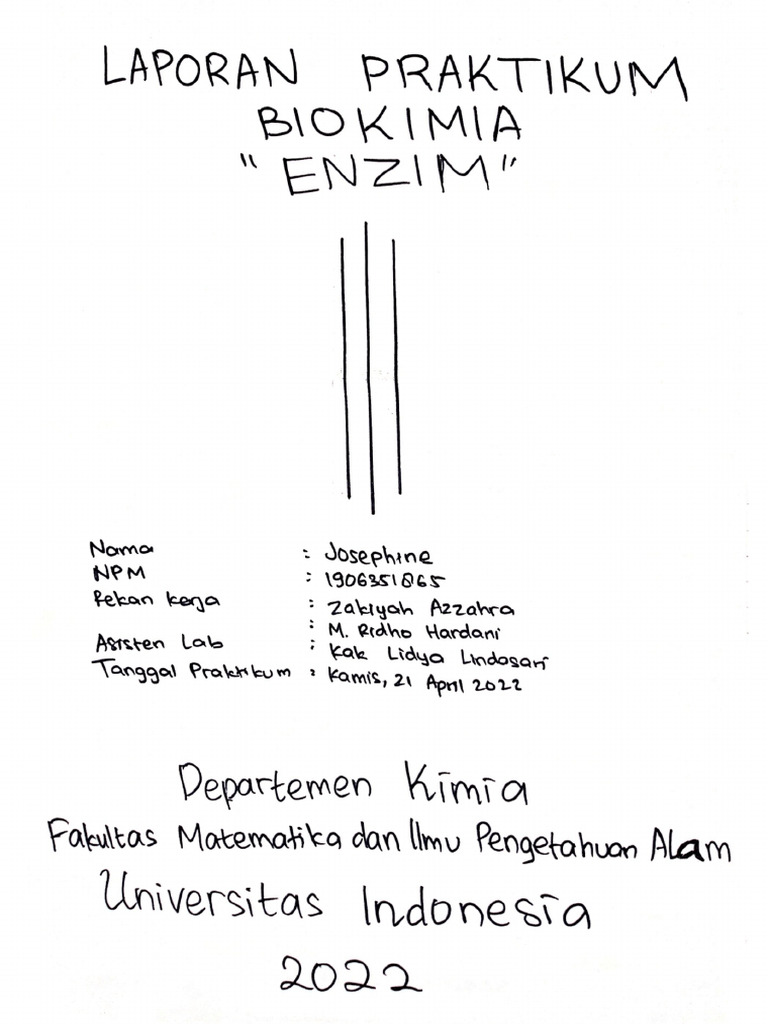 LAPORAN PRAKTIKUM
BIOKIMIA
"ENZIM"
Nama : Josephine
NPM : 1906351865
Rekan kerja : Zakiyah Azzahra
: M. Ridho Hardani
Asisten Lab : Kak Lidya Lindasari
Tanggal Praktikum : Kamis, 21 April 2022
Departemen Kimia
Fakultas Matematika dan Ilmu Pengetahuan Alam
Universitas Indonesia
2022